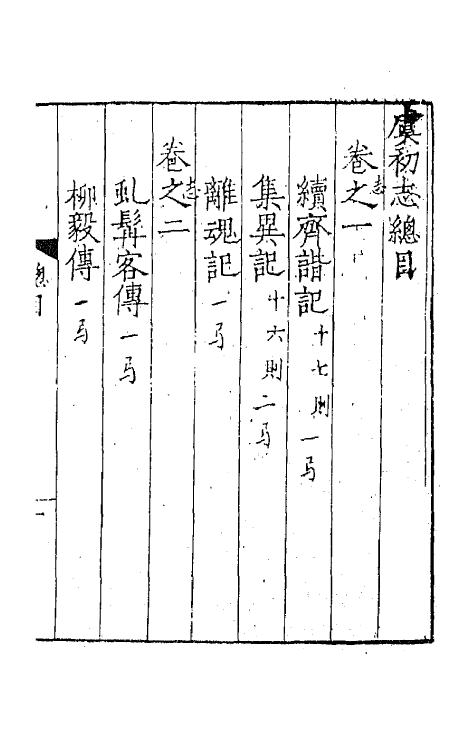 虞初志總目
卷之一
志
續齊諧記 十七則 一
集異記 十六則 二
離魂記 一
卷之二
志
虬髯客傳 一
柳毅傳 一
總目
一